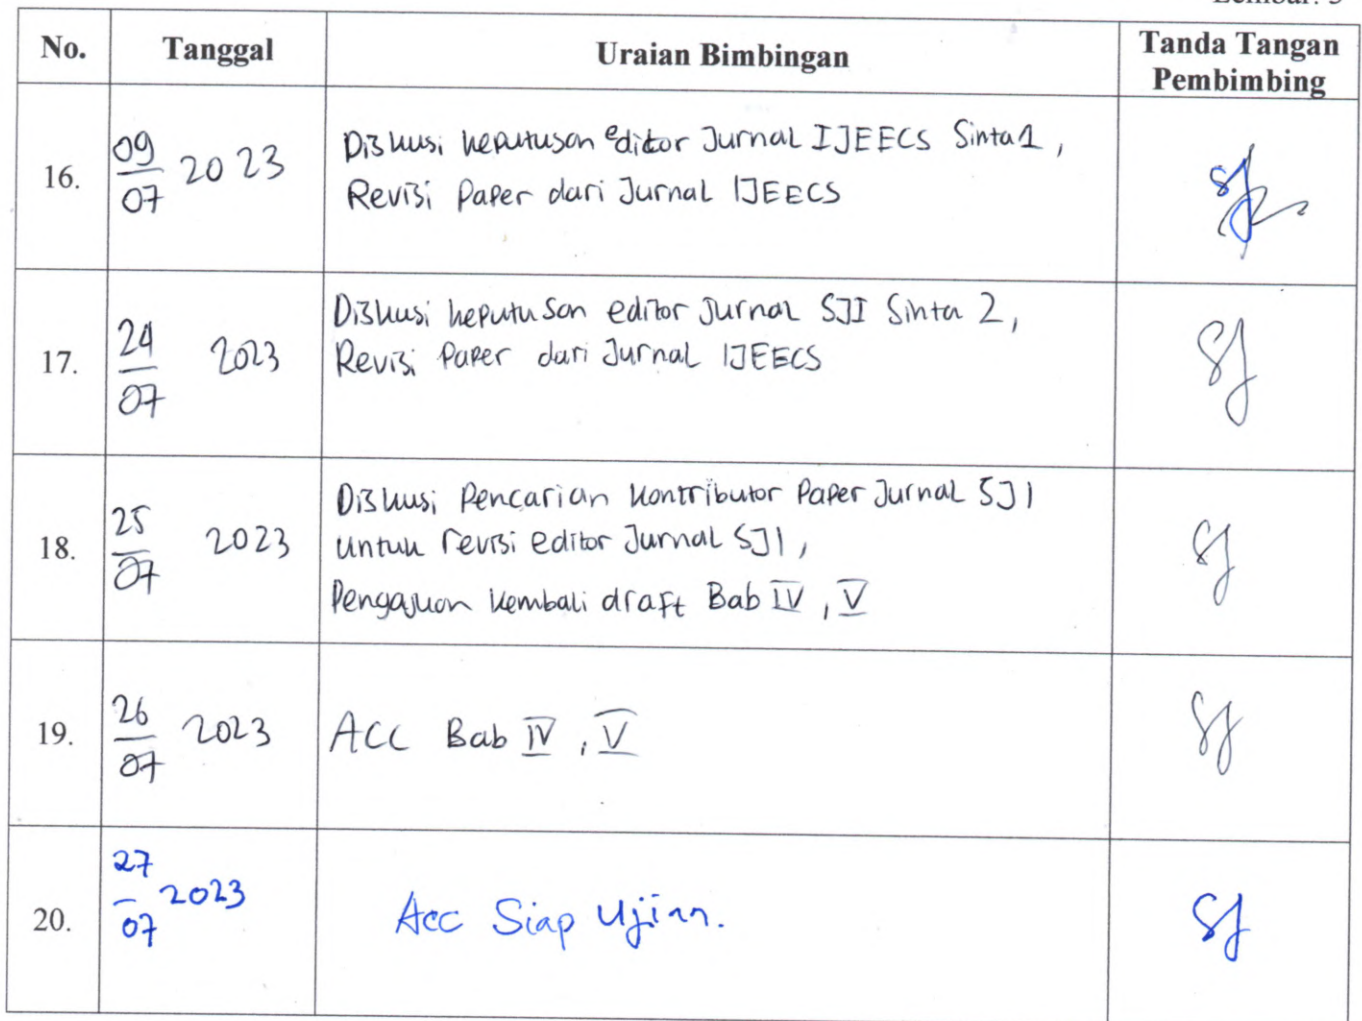 Lembar: 3
No.
Tanggal
Uraian Bimbingan
Tanda Tangan
Pembimbing
16.
09
07
2023
Diskusi keputusan editor Jurnal IJEECS Sinta 1,
Revisi Paper dari Jurnal IJEECS
17.
24
07
2023
Diskusi keputusan editor Jurnal SJI Sinta 2,
Revisi Paper dari Jurnal IJEECS
18.
25
07
2023
Diskusi Pencarian Kontributor Paper Jurnal SJI
untuk revisi editor Jurnal SJI,
Pengajuan kembali draft Bab IV, V
19.
26
07
2023
ACC Bab IV, V
20.
27
07
2023
Acc Siap Ujian.